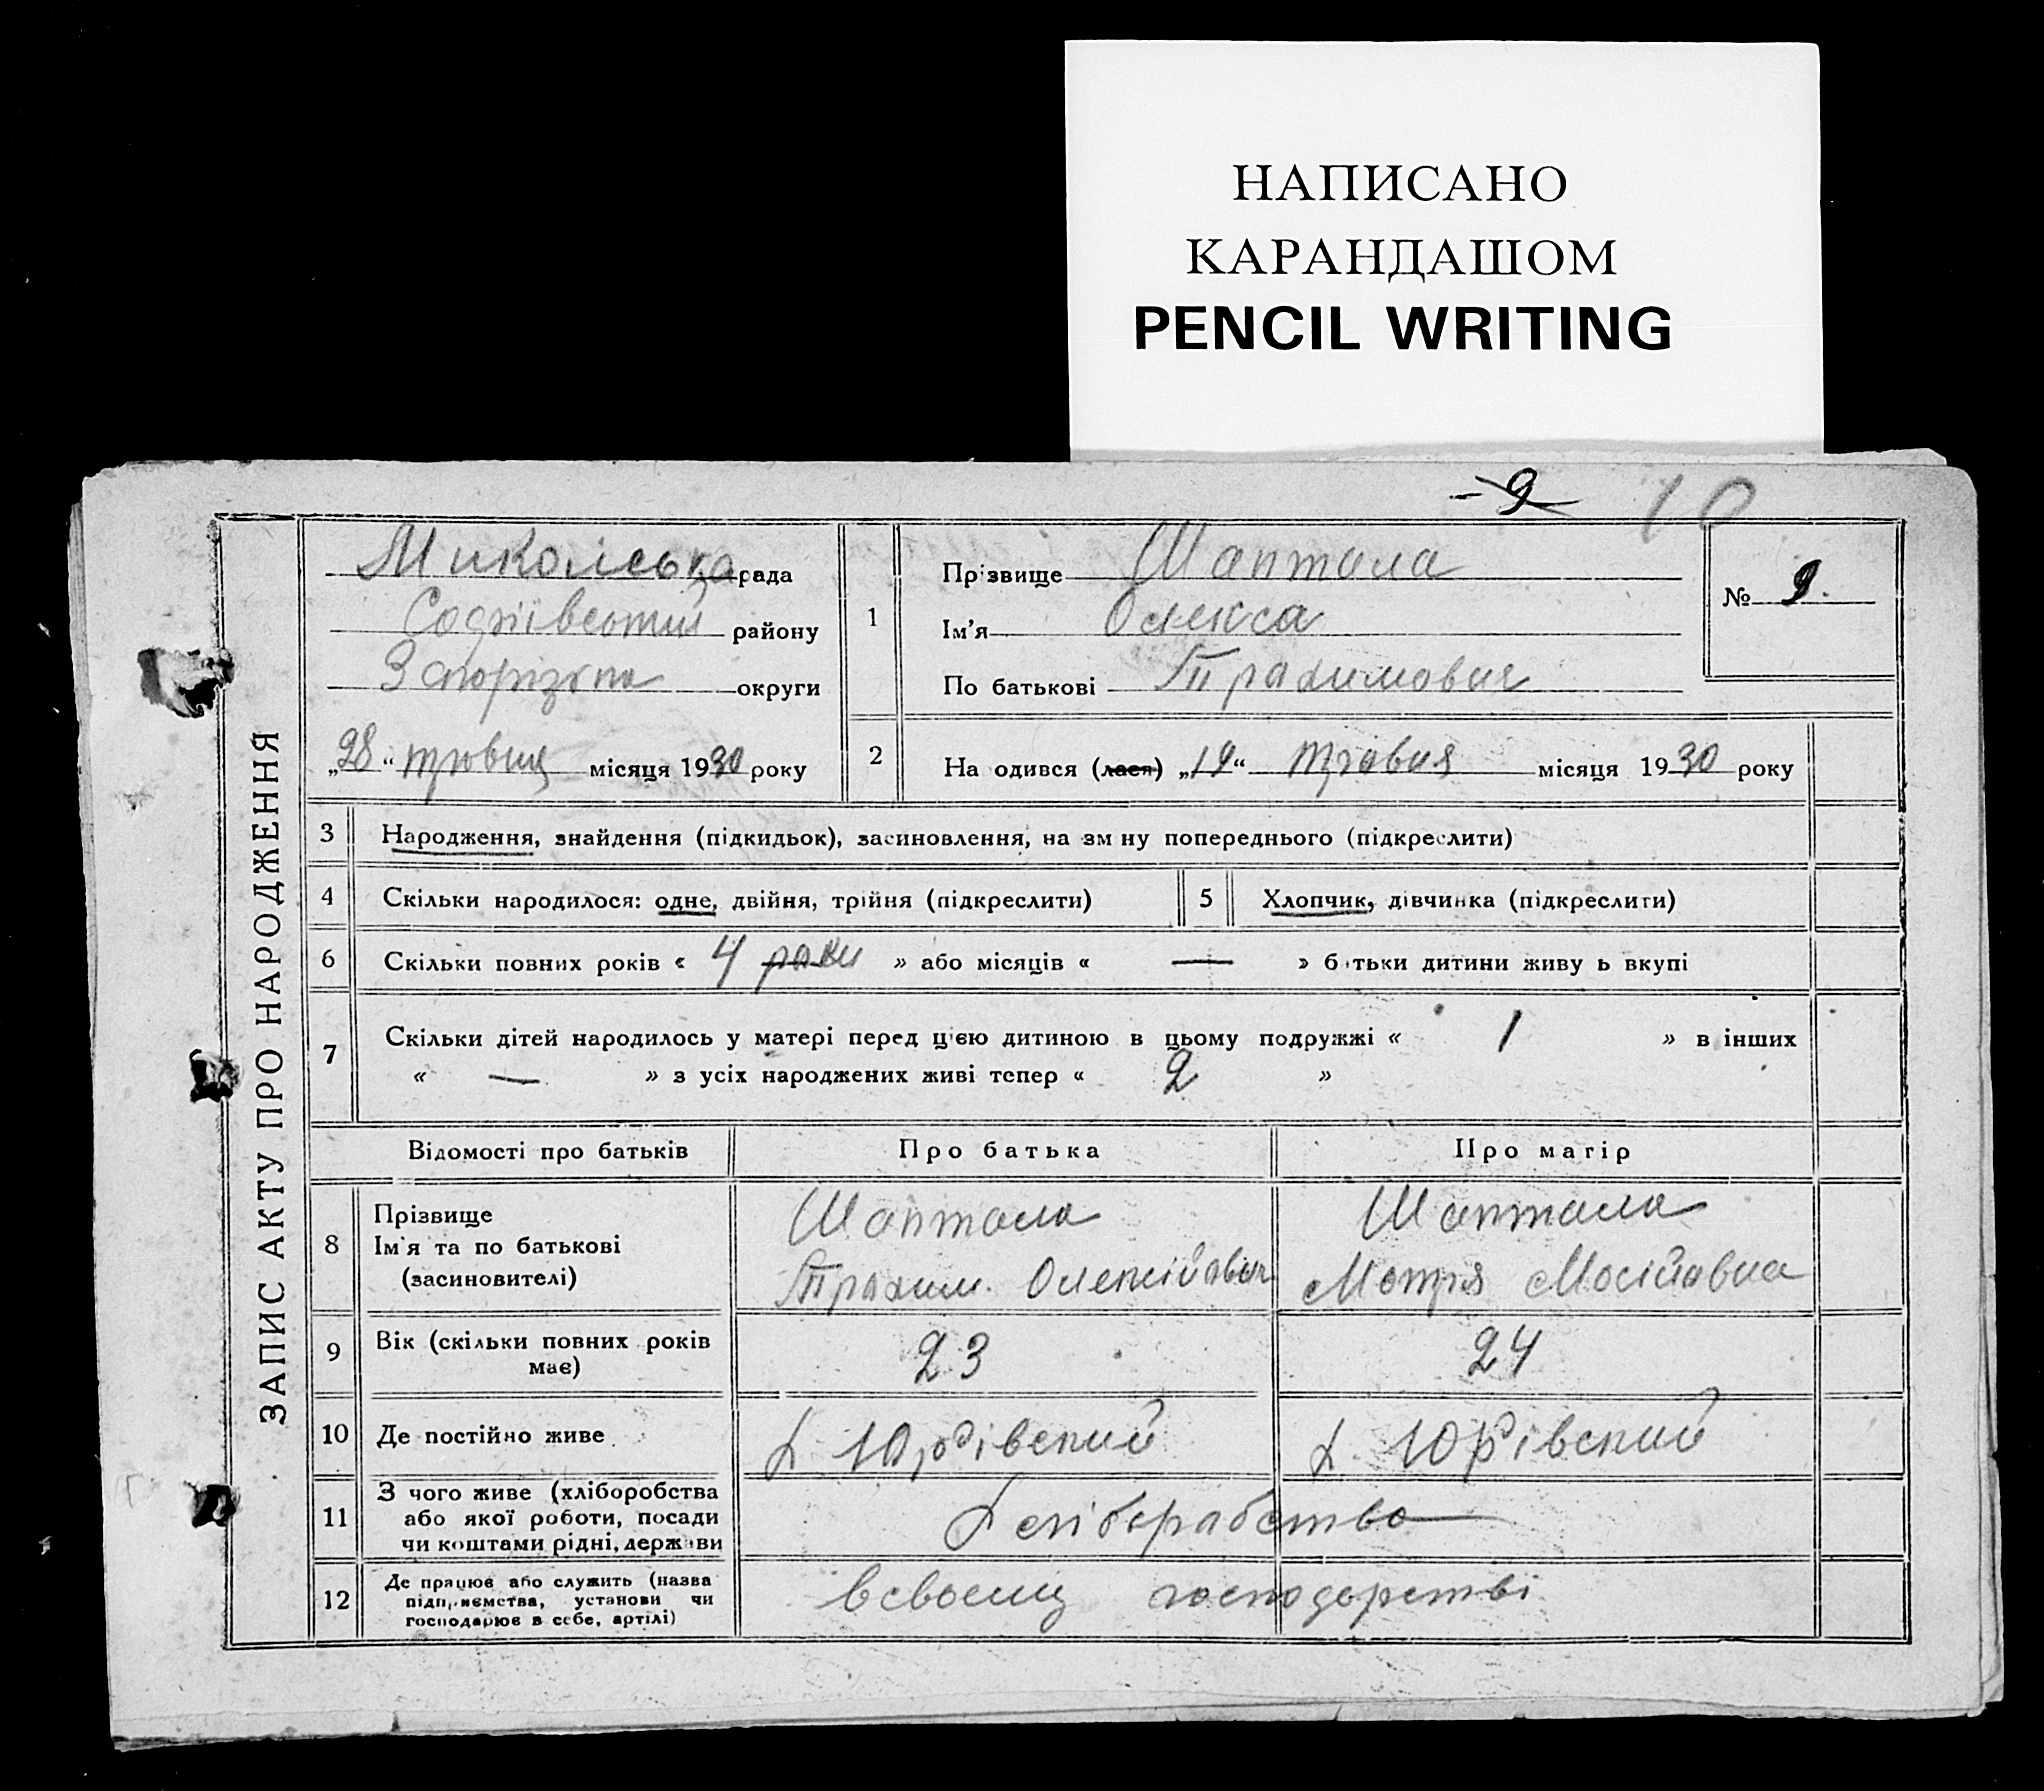 НАПИСАНО
КАРАНДАШОМ
PENCIL WRITING
9 10
ЗАПИС АКТУ ПРО НАРОДЖЕННЯ
Микольська рада
Софіївський району
Запорізька округи
„28“ травня місяця 1930 року
1
Прізвище Шаптала
Ім'я Олекса
По батькові Трахимович
№ 9.
2 На одився (лася) „19“ травня місяця 1930 року
3 Народження, знайдення (підкидьок), засиновлення, на зм ну попереднього (підкреслити)
4 Скільки народилося: одне, двійня, трійня (підкреслити) 5 Хлопчик, дівчинка (підкреслити)
6 Скільки повних років « 4 роки » або місяців « — » батьки дитини живу ь вкупі
7 Скільки дітей народилось у матері перед цією дитиною в цьому подружжі « 1 » в інших
« — » з усіх народжених живі тепер « 2 »
Відомості про батьків Про батька Про матір
8 Прізвище Шаптала Шаптала
Ім'я та по батькові Трахим. Олексійович Мотря Мосійовна
(засиновителі)
9 Вік (скільки повних років має) 23 24
10 Де постійно живе х. Юрівский х. Юрівский
11 З чого живе (хліборобства
або якої роботи, посади Хліборабство
чи коштами рідні, держави
12 Де працює або служить (назва
підприємства, установи чи всвоему господарстві
господарює в себе, артілі)